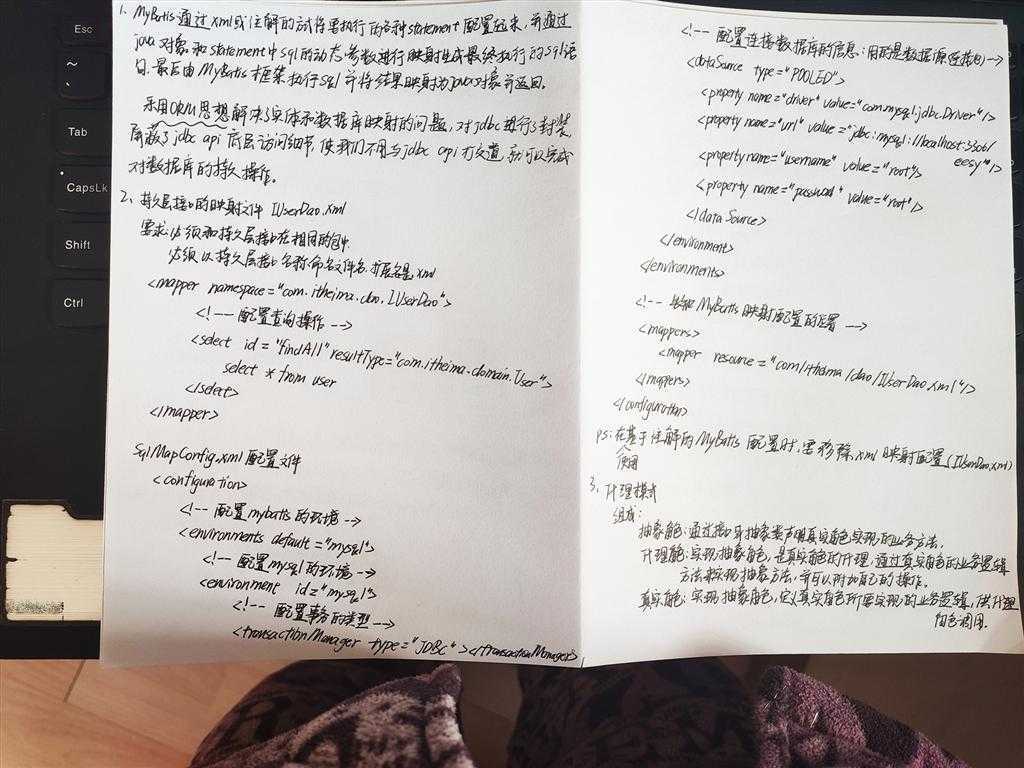 Esc
~
、
Tab
CapsLk
Shift
Ctrl
1. MyBatis通过xml或注解的方式将要执行的各种statement配置起来，并通过
java对象和statement中sql的动态参数进行映射生成最终执行的sql语
句，最后由MyBatis框架执行sql并将结果映射为java对象并返回。
采用ORM思想解决了实体和数据库映射的问题，对jdbc进行了封装，
屏蔽了jdbc api底层访问细节，使我们不用与jdbc api打交道，就可以完成
对数据库的持久操作。
2、持久层接口的映射文件 IUserDao.xml
要求：必须和持久层接口在相同的包中
必须以持久层接口名称命名文件名，扩展名是.xml
<mapper namespace="com.itheima.dao.IUserDao">
<!-- 配置查询操作 -->
<select id="findAll" resultType="com.itheima.domain.User">
select * from user
</select>
</mapper>
SqlMapConfig.xml配置文件
<configuration>
<!-- 配置mybatis的环境 -->
<environments default="mysql">
<!-- 配置mysql的环境 -->
<environment id="mysql">
<!-- 配置事务的类型 -->
<transactionManager type="JDBC"></transactionManager>
<!-- 配置连接数据库的信息：用的是数据源(连接池) -->
<dataSource type="POOLED">
<property name="driver" value="com.mysql.jdbc.Driver"/>
<property name="url" value="jdbc:mysql://localhost:3306/
eesy"/>
<property name="username" value="root"/>
<property name="password" value="root"/>
</dataSource>
</environment>
</environments>
<!-- 告知MyBatis映射配置的位置 -->
<mappers>
<mapper resource="com/itheima/dao/IUserDao.xml"/>
</mappers>
</configuration>
ps: 在基于注解的MyBatis配置时，需移除.xml映射配置(IUserDao.xml)
使用
3、代理模式
组成：
抽象角色：通过接口或抽象类声明真实角色实现的业务方法。
代理角色：实现抽象角色，是真实角色的代理，通过真实角色的业务逻辑
方法来实现抽象方法，并可以附加自己的操作。
真实角色：实现抽象角色，定义真实角色所要实现的业务逻辑，供代理
角色调用。